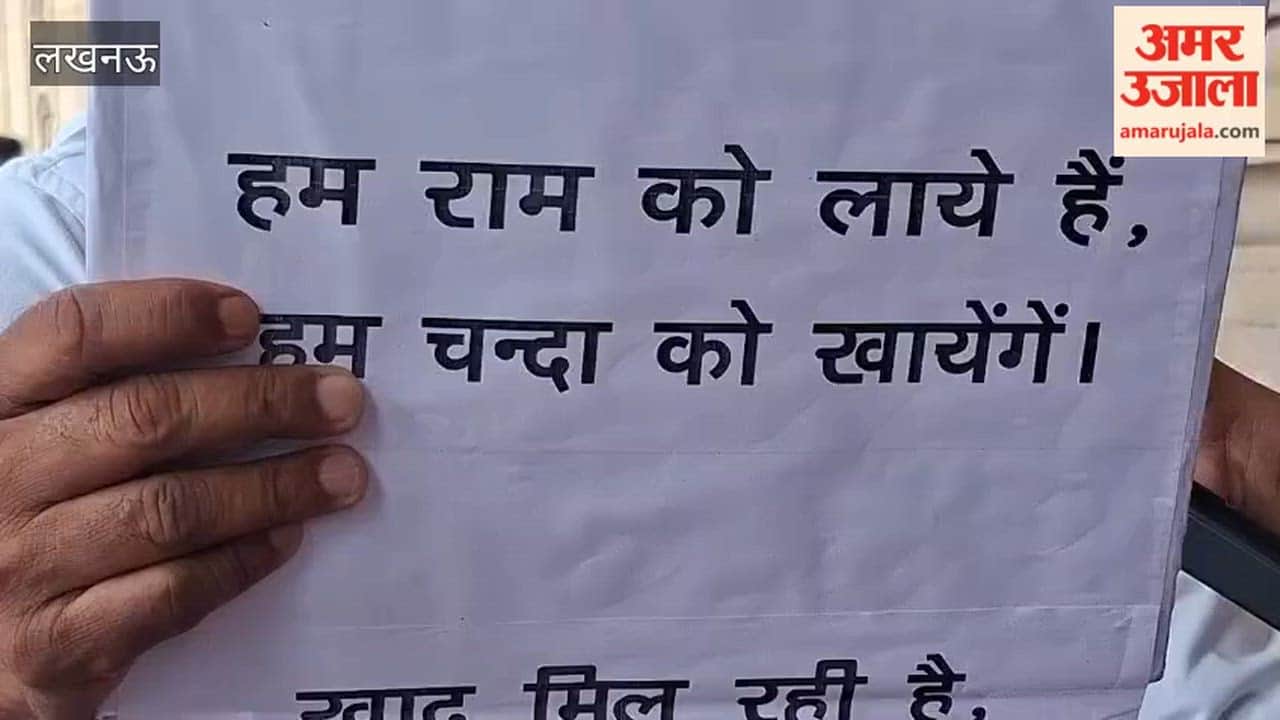 लखनऊ
अमर
उजाला
amarujala.com
हम राम को लाये हैं,
हम चन्दा को खायेंगें।
खाद मिल रही है,